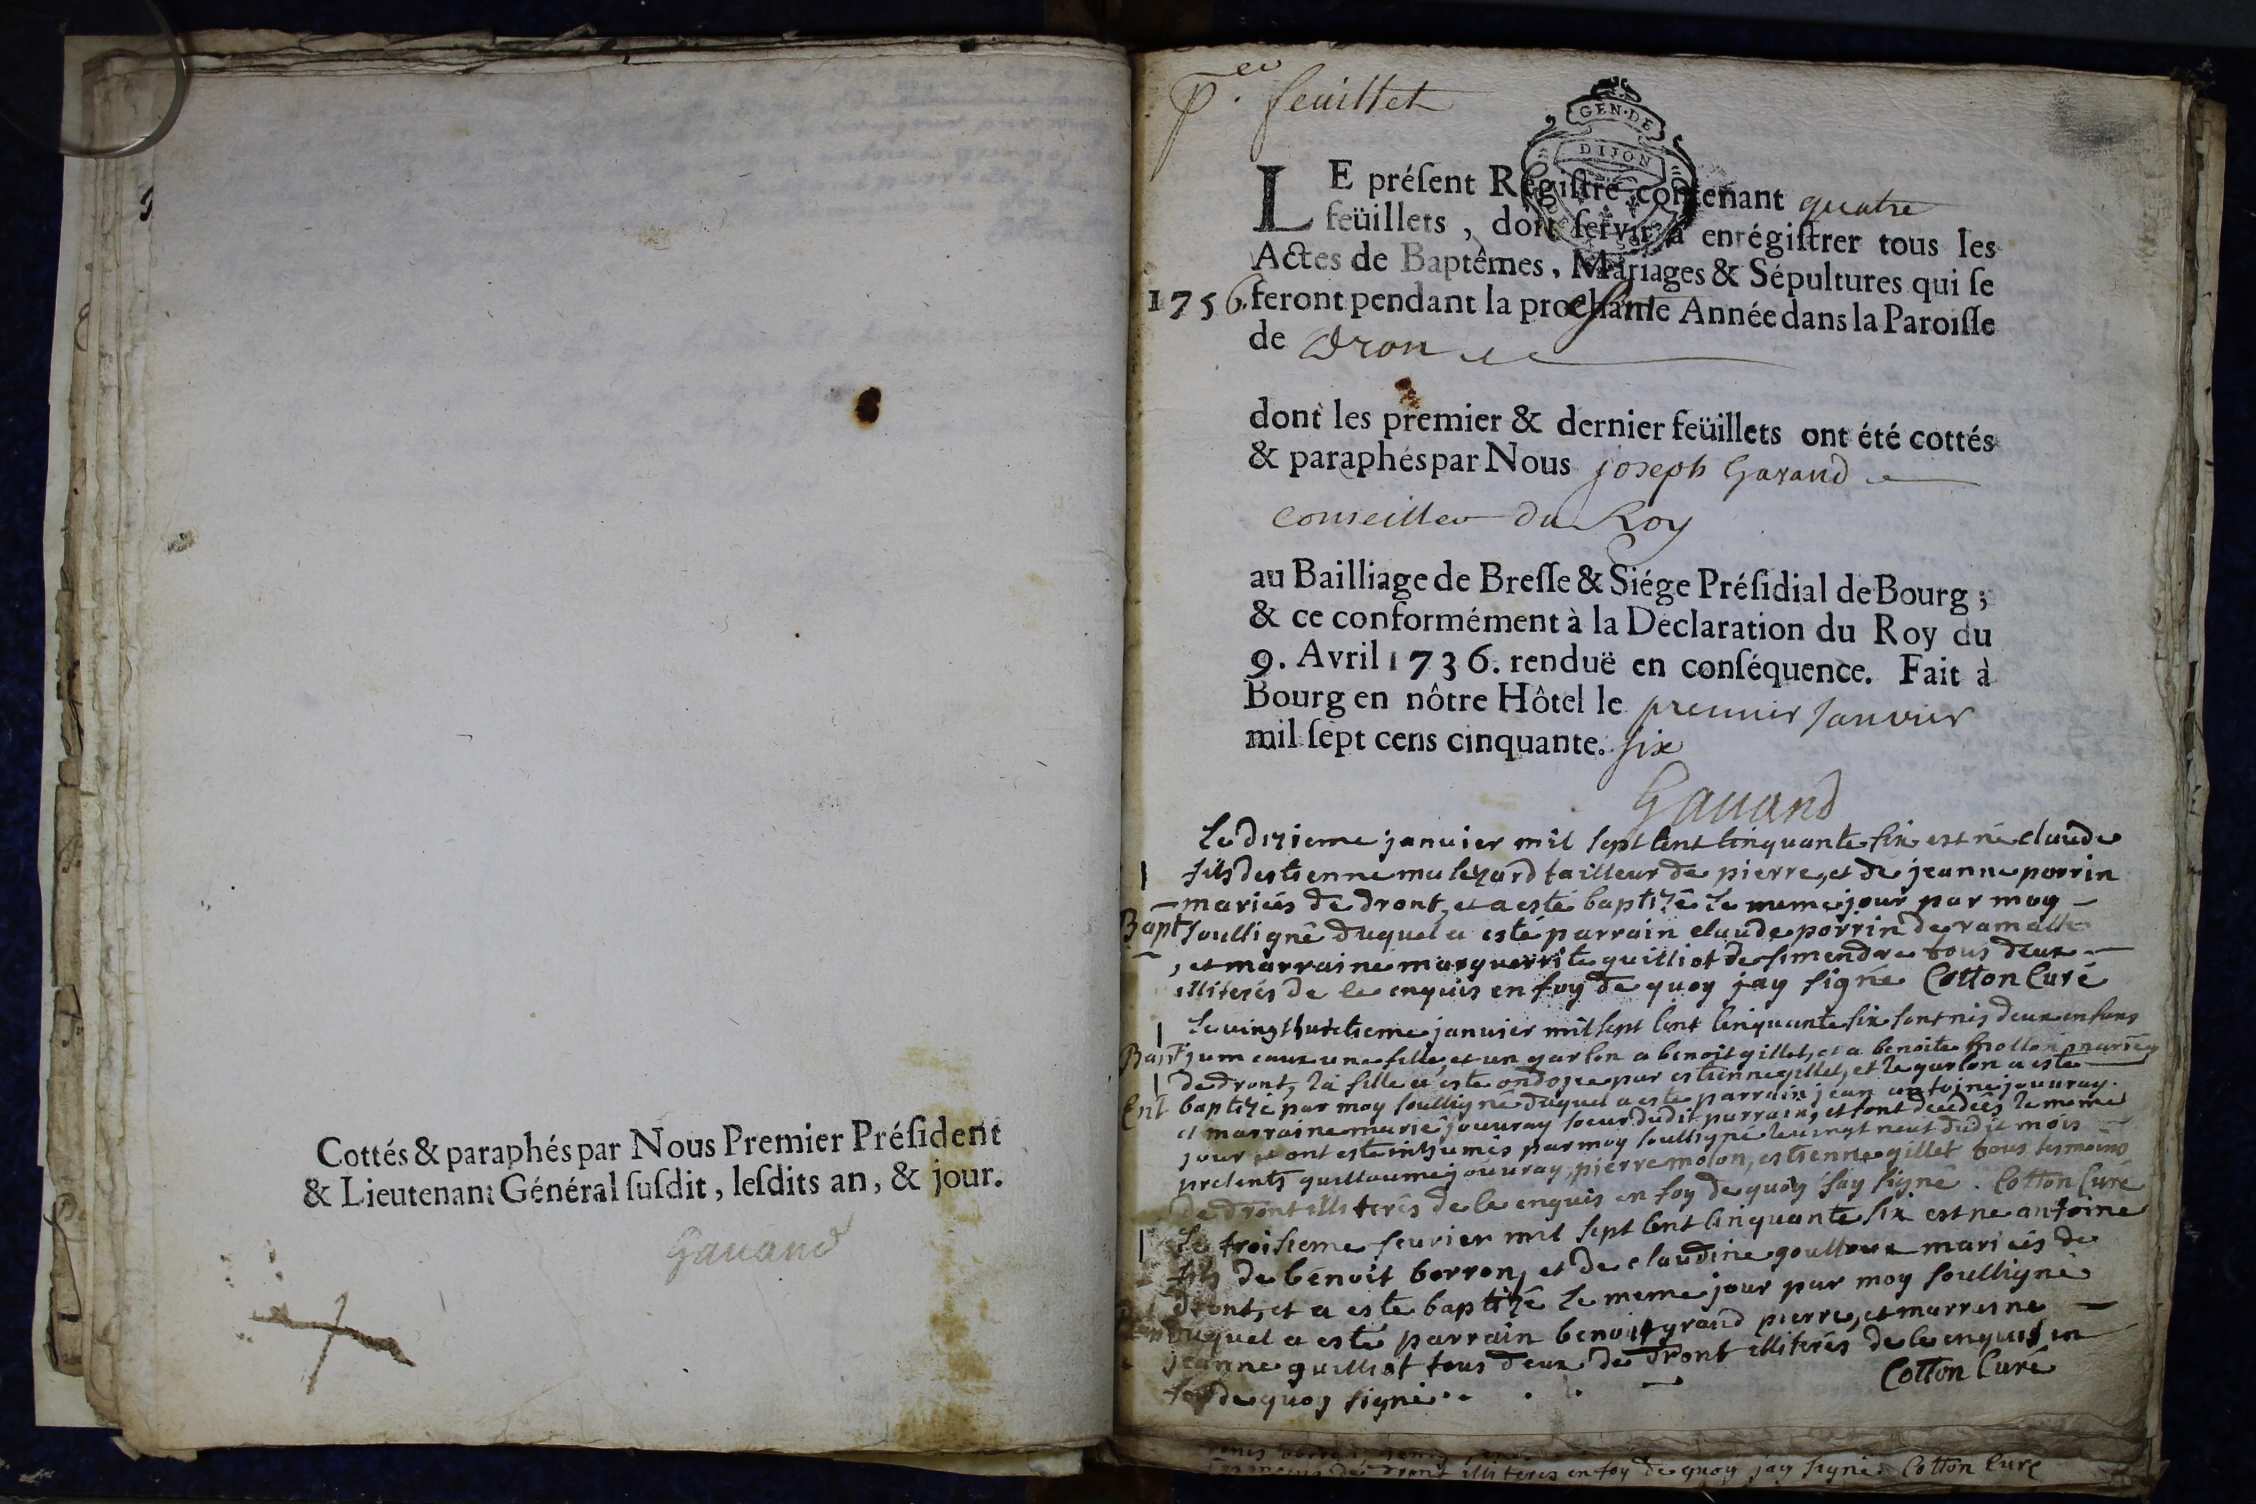 Cottés & paraphés par Nous Premier Présidént
& Lieutenant Général susdit, lesdits an, & jour.
Gauand
per feuillet
GEN·DE
DIJON
LE présent Régistre contenant quatre
feüillets, doit servir à enrégistrer tous les
Actes de Baptêmes, Mariages & Sépultures qui se
1756. feront pendant la prochaine Année dans la Paroisse
de Dron
dont les premier & dernier feüillets ont été cottés
& paraphés par Nous joseph Gauand
Conseiller du Roy
au Bailliage de Bresse & Siége Présidial de Bourg;
& ce conformément à la Déclaration du Roy du
9. Avril 1736. renduë en conséquence. Fait à
Bourg en nôtre Hôtel le premier Janvier
mil sept cens cinquante. six
Gauand
Le dizieme januier mil sept cent cinquante six est né claude
1 fils destienne malezard tailleur de pierre, et de jeanne porrin
mariés de dront, et a esté baptizé le meme jour par moy
Bapt soussigné duquel a esté parrain claude porrin de ramasse
, et marraine marguerrite guilliot de simendre tous deux
illiterés de ce enquis en foy de quoy jay signé Cotton Curé
1 Le vingt huitieme januier mil sept cent cinquante six sont nés deux enfans
Bapt jumeaux une fille, et un garson a benoit gillet, et a benoite mariés
1 de dront, la fille a esté ondoyee par estienne gillet, et le garson a esté
Ent baptizé par moy soussigné duquel a esté parrain jean antoine jouuray
et marraine marie jouuray soeur dudit parrain, et sont decedés le meme
jour et ont esté inhumés par moy soussigné le vingt neuf dudit mois
presents guillaume jouuray, pierre molon, estienne gillet tous tesmoins
de dront illiterés de ce enquis en foy de quoy jay signé. Cotton Curé
1 Le troisieme feurier mil sept cent cinquante six est né antoine
fils de benoit borron, et de claudine goulloux mariés de
dront, et a esté baptizé le meme jour par moy soussigné
duquel a esté parrain benoit grand pierre, et marraine
jeanne guilliot tous deux de dront illiterés de ce enquis en
foy de quoy signé Cotton Curé
de dront illiterés en foy de quoy jay signé. Cotton Curé